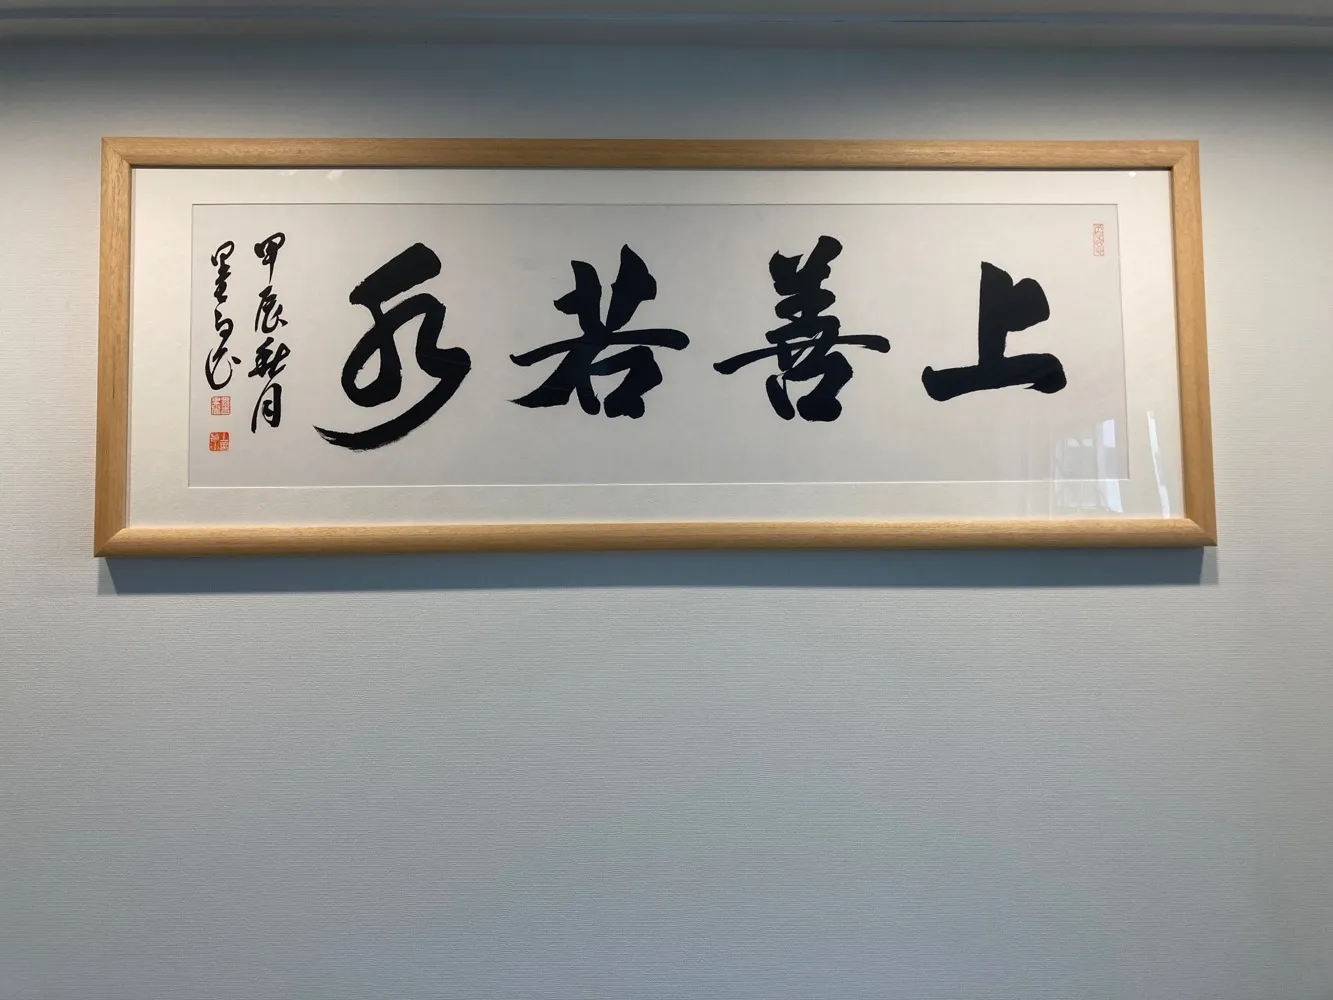 上善若水
甲辰秋月